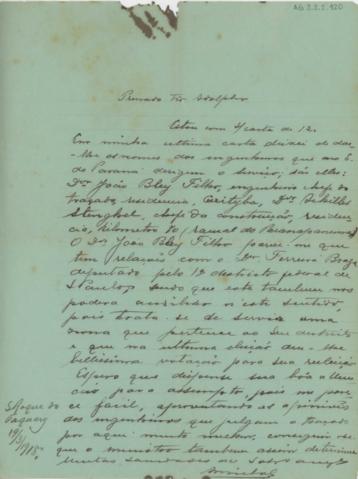 AG 2.2.2.120
Presado Tio Adolpho
Estou com s/carta de 12.
Em minha ultima carta deixei de dar-
lhe os nomes dos engenheiros que no E.
do Paraná dirigem o serviço, são elles:
Drs João Bley Filho, engenheiro chefe do
traçado, residencia, Corityba, Drs
Stenghel, chefe da construcção, residen-
cia, kilometro 10 (ramal do Paranapanema)
O Dr João Bley Filho parece-me que
tem relação com o Dor Ferreira Braga
deputado pelo 1º destricto federal de
S Paulo, sendo que este tambem nos
poderá auxiliar n'este sentido,
pois trata-se de servir uma
zona que pertence ao seu destricto
e que na ultima eleição deu-lhe
bellissima votação para sua reeleição
Espero que dispense sua boa atten-
ção para o assumpto, pois me pare-
ce facil, apresentando as opiniões
dos engenheiros que julgam o traçado
por aqui muito melhor, conseguir-se
que o ministro tambem assim determine
Muitas saudades do
S Roque do
19/3/918